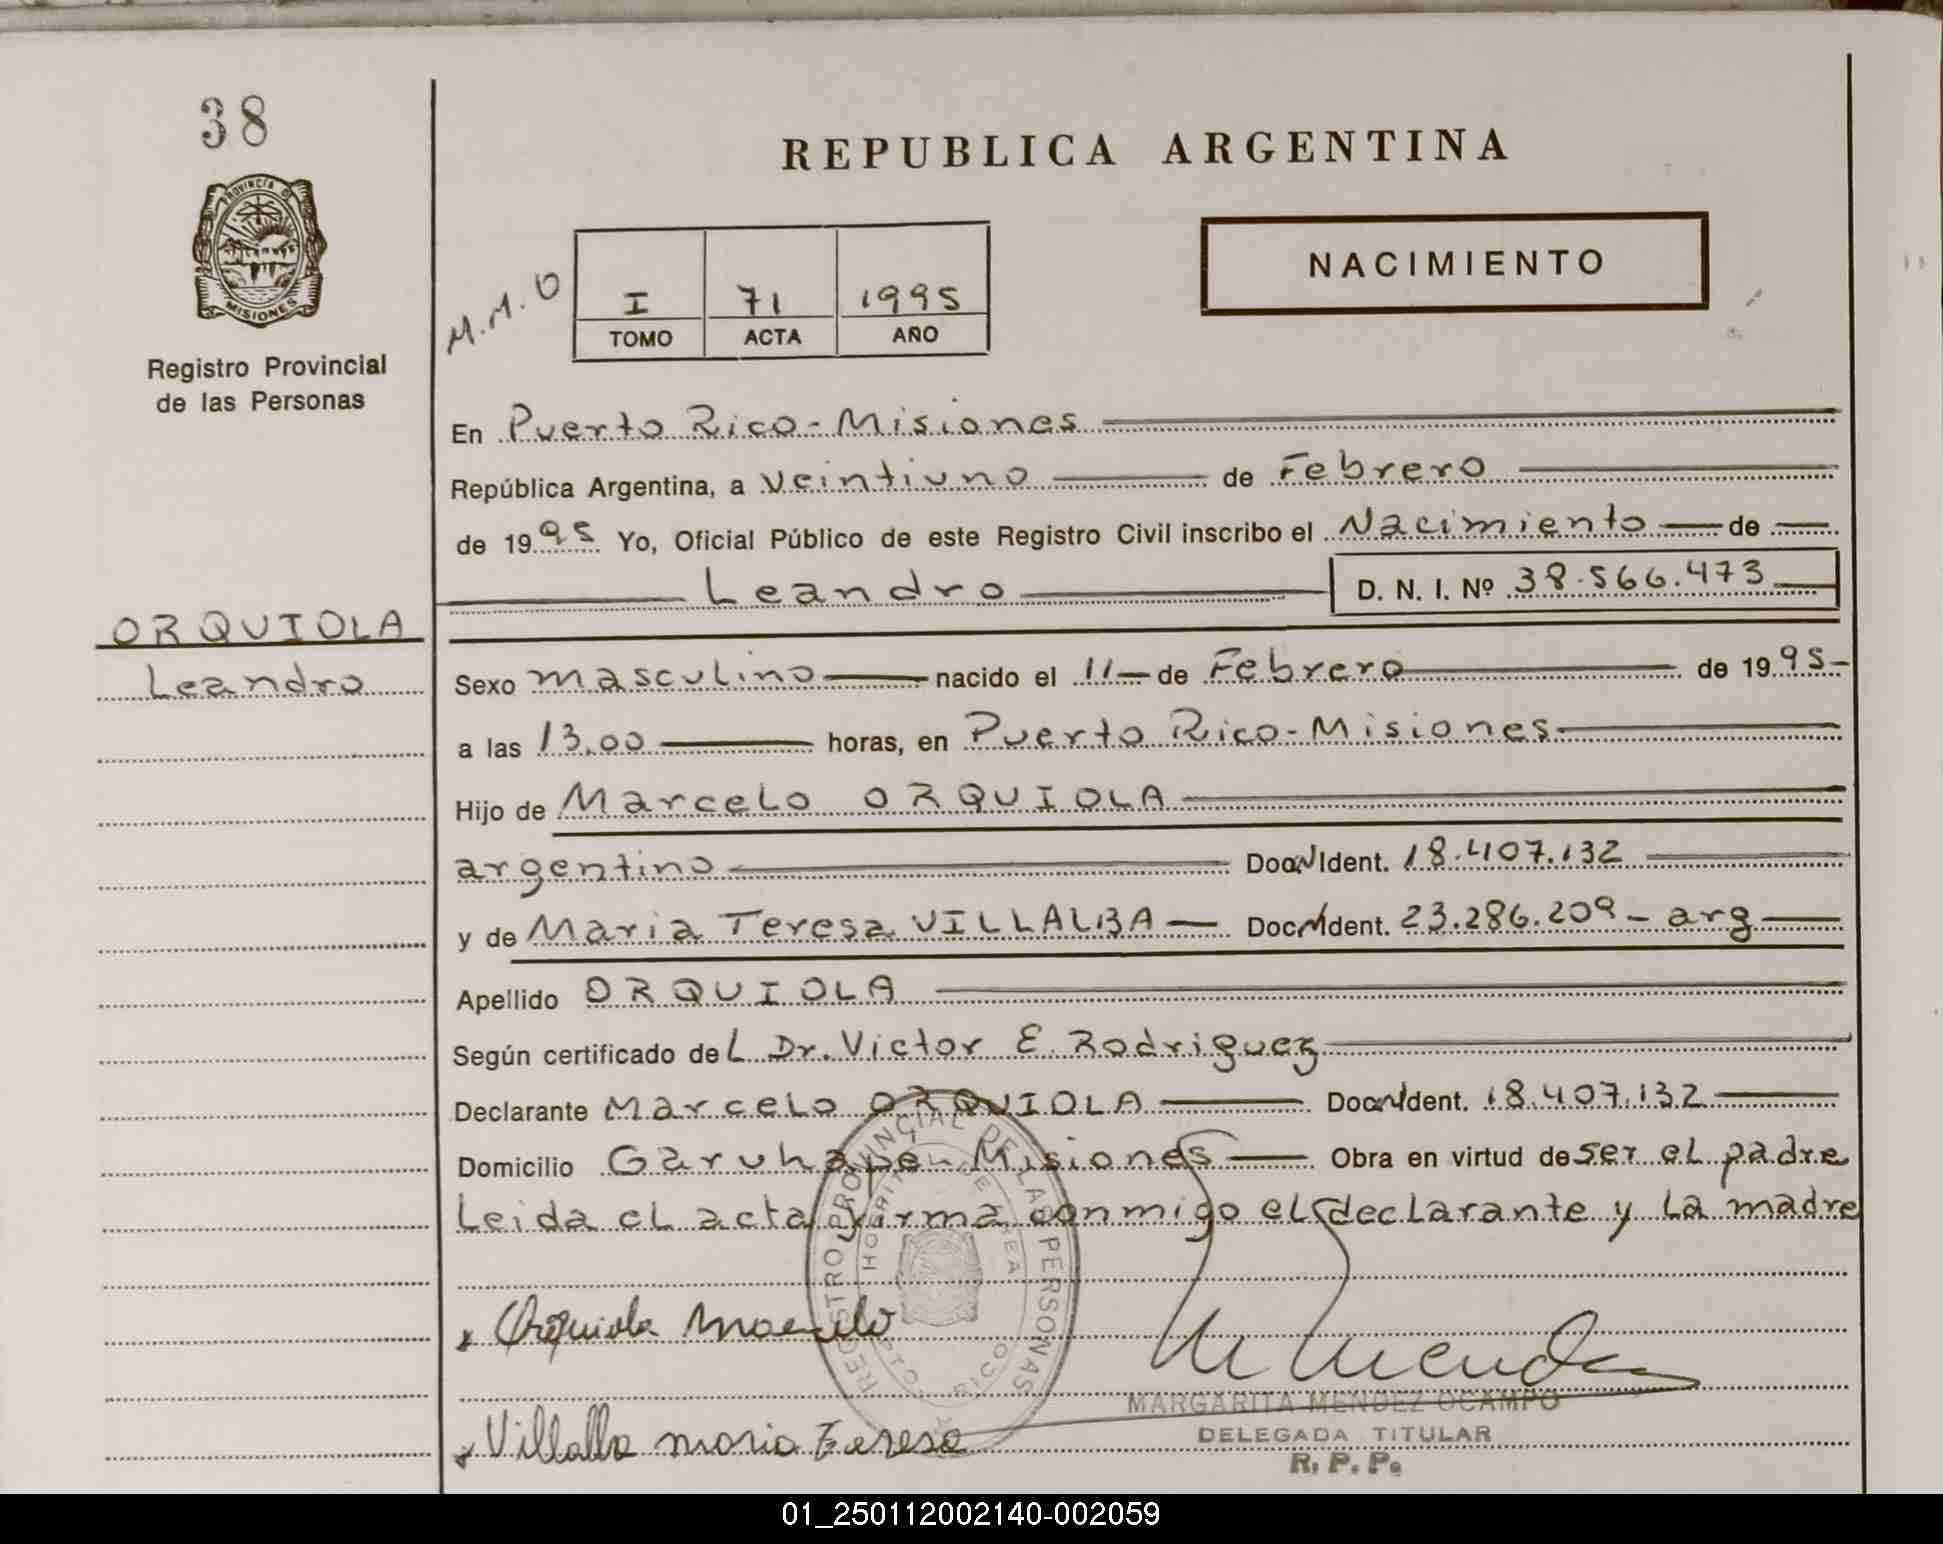 38
PROVINCIA DE
MISIONES
Registro Provincial
de las Personas
ORQUIOLA
Leandro
REPUBLICA ARGENTINA
M.M.O
I 71 1995
TOMO ACTA AÑO
NACIMIENTO
En Puerto Rico - Misiones
República Argentina, a veintiuno de Febrero
de 1995 Yo, Oficial Público de este Registro Civil inscribo el Nacimiento de
Leandro D. N. I. Nº 38.566.473
Sexo masculino nacido el 11 de Febrero de 1995
a las 13.00 horas, en Puerto Rico - Misiones
Hijo de Marcelo ORQUIOLA
argentino Doc. Ident. 18.407.132
y de Maria Teresa VILLALBA Doc. Ident. 23.286.209 - arg
Apellido ORQUIOLA
Según certificado del Dr. Victor E. Rodriguez
Declarante Marcelo ORQUIOLA Doc. Ident. 18.407.132
Domicilio Garuhapé - Misiones Obra en virtud de ser el padre
Leida el acta firma conmigo el declarante y la madre
REGISTRO PROVINCIAL DE LAS PERSONAS
Orquiola Marcelo
M Mendez
MARGARITA MENDEZ OCAMPO
Villalba maria Teresa
DELEGADA TITULAR
R. P. P.
01_250112002140-002059